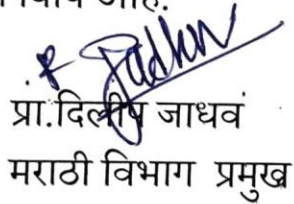 प्रा.दिलीप जाधव
मराठी विभाग प्रमुख